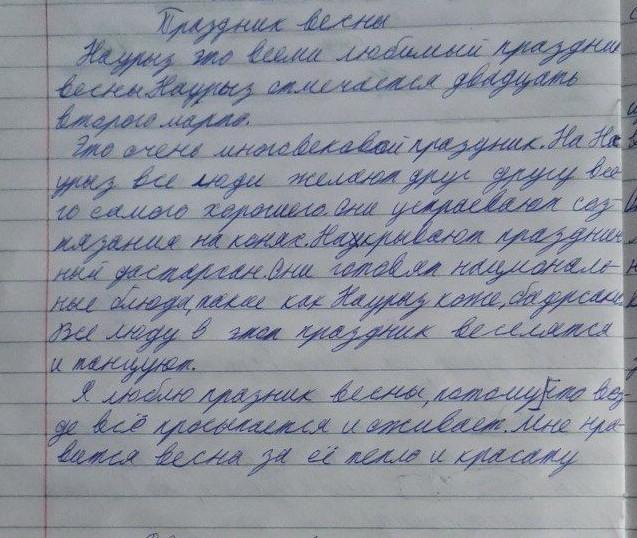 Праздник весны
Наурыз это всеми любимый праздник
весны. Наурыз отмечается двадцать
второго марта.
Это очень многовековой праздник. На На-
урыз все люди желают друг другу все-
го самого хорошего. Они устраевают сос-
тязания на конях. Накрывают празднич
ный дастархан. Они готовят националь-
ные блюда, такие как Наурыз коже, баурсаки.
Все люду в этот праздник веселятся
и танцуют.
Я люблю празник весны, потому что вез-
де всё просыпается и оживает. Мне нра-
вится весна за её тепло и красату